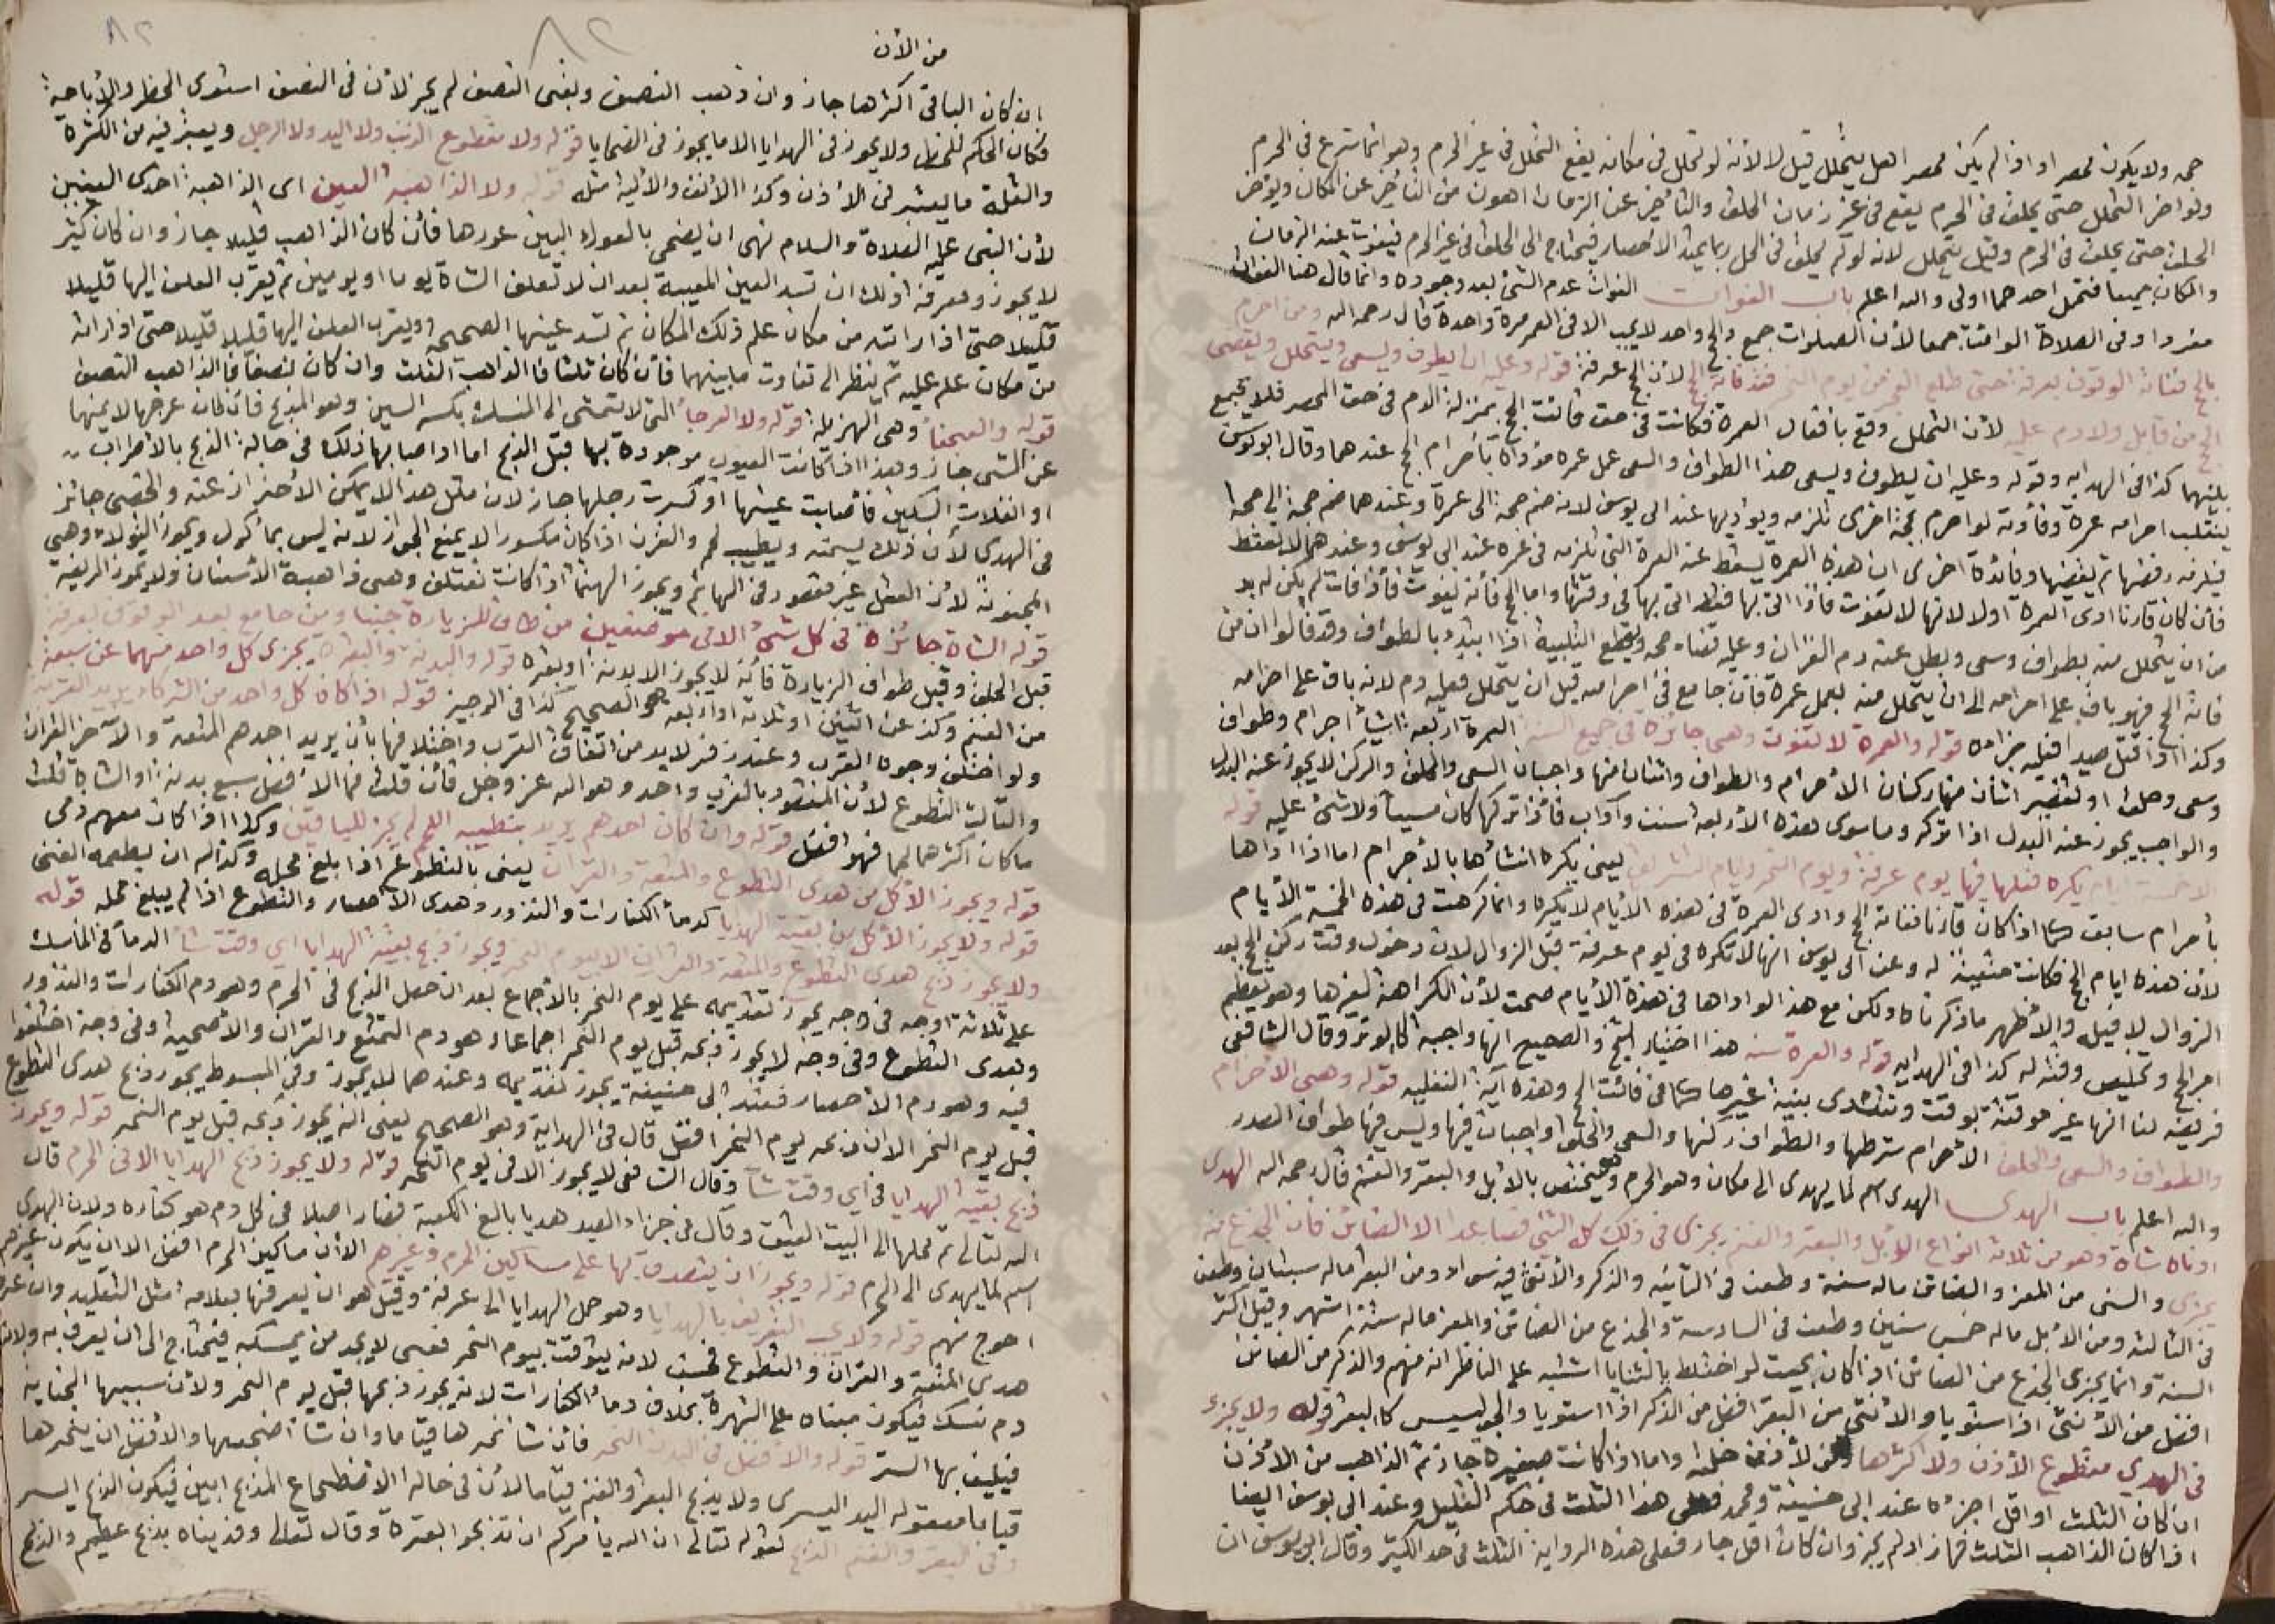 حجه ولا يكون محصرا واذا لم يكن محصرا هل يتحلل قيل لا لانه لو تحلل في مكانه يقع التحلل في غير الحرم وهو انما شرع في الحرم
ولو اخر التحلل حتى يحلق في الحرم يقع في غير زمان الحلق والتأخير عن الزمان اهون من التأخير عن المكان ويؤخر
الحلق حتى يحلق في الحرم وقيل يتحلل لانه لو لم يحلق في الحل ربما يمتد الاحصار فيحتاج الى الحلق في غير الحرم فيفوت عنه الزمان
والمكان جميعا فتحمل احدهما اولى والله اعلم باب الفوات الفوات عدم الشئ بعد وجوده وانما قال هنا الفوات
مفردا وفي الصلاة الفوائت جمعا لأن الصلوات جمع والحج واحد لا يجب الا في العمر مرة واحدة قال رحمه الله ومن احرم
بالحج ففاته الوقوف بعرفة حتى طلع الفجر من يوم النحر فقد فاته الحج لان الحج عرفة قوله وعليه ان يطوف ويسعى ويتحلل ويقضى
الحج من قابل ولا دم عليه لأن التحلل وقع بافعال العمرة فكانت في حق فائت الحج بمنزلة الدم في حق المحصر فلا يجمع
بينهما كذا في الهدايه وقوله وعليه ان يطوف ويسعى هذا الطواف والسعى عمل عمرة مؤداة بأحرام الحج عندهما وقال ابو يوسف
ينقلب احرامه عمرة وفائدته لو احرم بحجة اخرى تلزمه ويؤديها عند ابى يوسف لانه ضم حجة الى عمرة وعندهما ضم حجة الى حجة
فيلزمه رفضها ثم يقضيها وفائدة اخرى ان هذه العمرة يسقط عنه العمرة التي تلزمه في عمره عند ابى يوسف وعندهما لا يسقط
فان كان قارنا ادى العمرة اولا لانها لا تفوت فاذا اتى بها فقط اتى بها في وقتها واما الحج فانه يفوت فاذا فات لم يكن له بد
من ان يتحلل منه بطواف وسعى وبطل عنه دم القران وعليه قضاء حجه ويقطع التلبية اذا ابتدء بالطواف وقد قالوا ان من
فاته الحج فهو باق على احرامه الى ان يتحلل منه بعمل عمرة فان جامع في احرامه قبل ان يتحلل فعليه دم لانه باق على احرامه
وكذا اذا قتل صيدا فعليه جزاءه قوله والعمرة لا تفوت وهي جائزة في جميع السنة العمرة اربعة اشيأ احرام وطواف
وسعى وحلق او تقصير اثنان منها ركنان الأحرام والطواف واثنان منها واجبان السعى والحلق والركن لا يجوز عنه البدل
والواجب يجوز عنه البدل اذا تركه وما سوى هذه الأربعة سنن وآداب فأذا تركها كان مسيئا ولا شئ عليه قوله
الا خمسة ايام يكره فعلها فيها يوم عرفة ويوم النحر وايام التشريق يعنى يكره انشأها بالأحرام اما اذا اداها
بأحرام سابق كما اذا كان قارنا ففاته الحج وادى العمرة في هذه الأيام لا يكره وانما كرهت في هذه الخمسة الأيام
لأن هذه ايام الحج فكانت متعينة له وعن ابى يوسف انها لا تكره في يوم عرفة قبل الزوال لان دخول وقت ركن الحج بعد
الزوال لا قبله والأظهر ما ذكرناه ولكن مع هذا لو اداها في هذه الأيام صحت لأن الكراهة لغيرها وهو تعظيم
امر الحج وتخليص وقته له كذا في الهدايه قوله والعمرة سنة هذا اختيار الشيخ والصحيح انها واجبة كالوتر وقال الشافعى
فريضة لنا انها غير موقتة بوقت وتتأدى بنية غيرها كما في فائت الحج وهذه آية النفليه قوله وهي الأحرام
والطواف والسعى والحلق الأحرام شرطها والطواف ركنها والسعى والحلق واجبان فيها وليس فيها طواف الصدر
والله اعلم باب الهدى الهدى اسم لما يهدى الى مكان وهو الحرم وهو يختص بالأبل والبقر والغنم قال رحمه الله الهدى
ادناه شاة وهو من ثلاثة انواع الأبل والبقر والغنم يجزى في ذلك كله الثني فصاعدا الا الضائن فان الجذع منه
يجزى والثنى من المعز والضائن ماله سنة وطعن في الثانيه والذكر والأنثى فيه سواء ومن البقر ماله سنتان وطعن
في الثالثه ومن الأبل ماله خمس سنين وطعن في السادسة والجذع من الضائن والمعز ماله ستة اشهر وقيل اكثر
السنة وانما يجزى الجذع من الضائن اذا كان بحيث لو اختلط بالثنايا اشتبه على الناظر انه منهم والذكر من الضائن
افضل من الأنثى اذا استويا والأنثى من البقر افضل من الذكر اذا استويا والجواميس كالبقر قوله ولا يجزء
في الهدى مقطوع الأذن ولا اكثرها ومن لا اذن خلقة واما اذا كانت صغيرة جاز ثم الذاهب من الأذن
ان كان الثلث او اقل اجزءه عند ابى حنيفة ومحمد فعلى هذا الثلث في حكم القليل وعند ابى يوسف ايضا
اذا كان الذاهب الثلث فما زاد لم يجز وان كان اقل جاز فعلى هذه الروايه الثلث في حد الكثير وقال ابو يوسف ان
٨٢
٨٢
من الأذن
ان كان الباقى اكثرها جاز وان ذهب النصف وبقى النصف لم يجز لأن في النصف استوى الحظر والأباحة
فكان الحكم للحظر ولا يجوز في الهدايا الا ما يجوز في الضحايا قوله ولا مقطوع الذنب ولا اليد ولا الرجل ويعتبر فيه من الكثرة
والقلة ما يعتبر في الأذن وكذا الأنف والألية مثله قوله ولا الذاهبة العين اى الذاهبة احدى العينين
لأن النبى عليه الصلاة والسلام نهى ان يضحى بالعوراء البين عورها فأن كان الذاهب قليلا جاز وان كان كثير
لا يجوز ومعرفة ذلك ان تشد العين المعيبة بعد ان لا تعلف الشاة يوما او يومين ثم يقرب العلف اليها قليلا
قليلا حتى اذا راته من مكان علم ذلك المكان ثم تشد عينها الصحيحة ويقرب العلف اليها قليلا قليلا حتى اذا راته
من مكان علم عليه ثم ينظر الى تفاوت ما بينهما فأن كان ثلثا فالذاهب الثلث وان كان نصفا فالذاهب النصف
قوله والعجفأ وهي الهزيلة قوله ولا العرجأ التي لا تمشى الى المنسك بكسر السين وهو المذبح فأن كان عرجها لا يمنعها
عن المشى جاز وهذا اذا كانت العيوب موجودة بها قبل الذبح اما اذا اصابها ذلك في حالة الذبح بالأضراب
او انفلات السكين فأصابت عينها او كسرت رجلها جاز لان مثل هذا لا يمكن الأحتراز عنه والخصى جائز
في الهدى لأن ذلك يسمنه ويطيب لحمه والقرن اذا كان مكسورا لا يمنع الجواز لانه ليس بمأكول ويجوز الثولاء وهي
المجنونة لأن العقل غير مقصود في البهائم ويجوز الهتمأ اذا كانت تعتلف وهي ذاهبة الأسنان ولا يجوز المريضة
قوله الشاة جائزة في كل شئ الا في موضعين من طاف للزيارة جنبا ومن جامع بعد الوقوف بعرفة
قبل الحلق وقبل طواف الزيارة فأنه لا يجوز الا بدنة او بقره قوله والبدنة والبقرة يجزى كل واحد منهما عن سبعة
من الغنم وكذا عن اثنين او ثلاثة او اربعه هو الصحيح كذا في الوجيز قوله اذا كان كل واحد من الشركاء يريد القربة
ولو اختلف وجوه القرب وعند زفر لا بد من اتفاق القرب واختلافها بأن يريد احدهم المتعة والآخر القران
والثالث التطوع لأن المقصود بالقرب واحد وهو الله عز وجل فأن قلت فما الأفضل سبع بدنة او الشاة قلت
ما كان اكثرهما لحما فهو افضل قوله وان كان احدهم يريد بنصيبه اللحم لم يجز للباقين وكذا اذا كان معهم ذمى
قوله ويجوز الأكل من هدى التطوع والمتعة والقران يعنى بالتطوع اذا بلغ محله وكذا له ان يطعمه الغنى
قوله ولا يجوز الأكل من بقية الهدايا كدمأ الكفارات والنذور وهدى الأحصار والتطوع اذا لم يبلغ محله قوله
ولا يجوز ذبح هدى التطوع والمتعة والقران الا يوم النحر ويجوز ذبح بقية الهدايا اي وقت شأ الدمأ في المناسك
على ثلاثة اوجه في وجه يجوز تقديمه على يوم النحر بالأجماع بعد ان حصل الذبح في الحرم وهو دم الكفارات والنذور
وهدى التطوع وفي وجه لا يجوز ذبحه قبل يوم النحر اجماعا وهو دم التمتع والقران والأضحيه وفي وجه اختلفوا
فيه وهو دم الأحصار فعند ابى حنيفة يجوز تقديمه وعندهما لا يجوز وفي المبسوط يجوز ذبح هدى التطوع
قبل يوم النحر الا ان ذبحه يوم النحر افضل قال في الهداية وهو الصحيح يعنى انه يجوز ذبحه قبل يوم النحر قوله ويجوز
ذبح بقية الهدايا في اي وقت شأ وقال الشافعى لا يجوز الا في يوم النحر قوله ولا يجوز ذبح الهدايا الا في الحرم قال
الله تعالى ثم محلها الى البيت العتيق وقال في جزاء الصيد هديا بالغ الكعبة فصار اصلا في كل دم هو كفارة ولان الهدى
اسم لما يهدى الى الحرم قوله ويجوز ان يتصدق بها على مساكين الحرم وغيرهم الا ان مساكين الحرم افضل الا ان يكون غيرهم
احوج منهم قوله ولا يجب التعريف بالهدايا وهو حمل الهدايا الى عرفة وقيل هو ان يعرفها بعلامة مثل التقليد وان عرف
هدى المتعة والقران والتطوع فحسن لانه يتوقت بيوم النحر فعسى لا يجد من يمسكه فيحتاج الى ان يعرف به ولانه
دم نسك فيكون مبناه على الشهرة بخلاف دمأ الكفارات لانه يجوز ذبحها قبل يوم النحر ولأن سببها الجناية
فيليق بها الستر قوله والأفضل في البدن النحر فأن شأ نحرها قياما وان شأ اضجعها والأفضل ان ينحرها
قياما معقوله اليد اليسرى ولا يذبح البقر والغنم قياما لأن في حالة الأضطجاع المذبح ابين فيكون الذبح ايسر
وفي البقر والغنم الذبح لقوله تعالى ان الله يأمركم ان تذبحوا بقرة وقال تعالى وفديناه بذبح عظيم والذبح